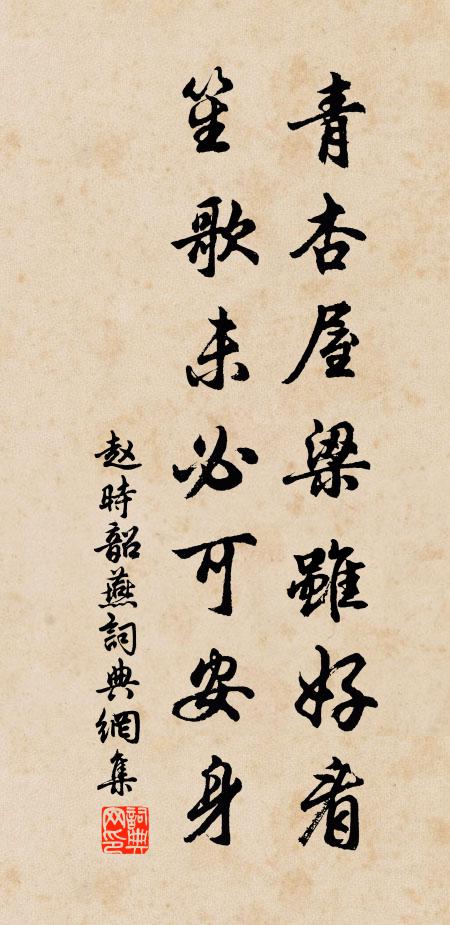 青杏屋梁雖好看
笙歌未必可安身
赵時韶燕詞典網集
詞典网印